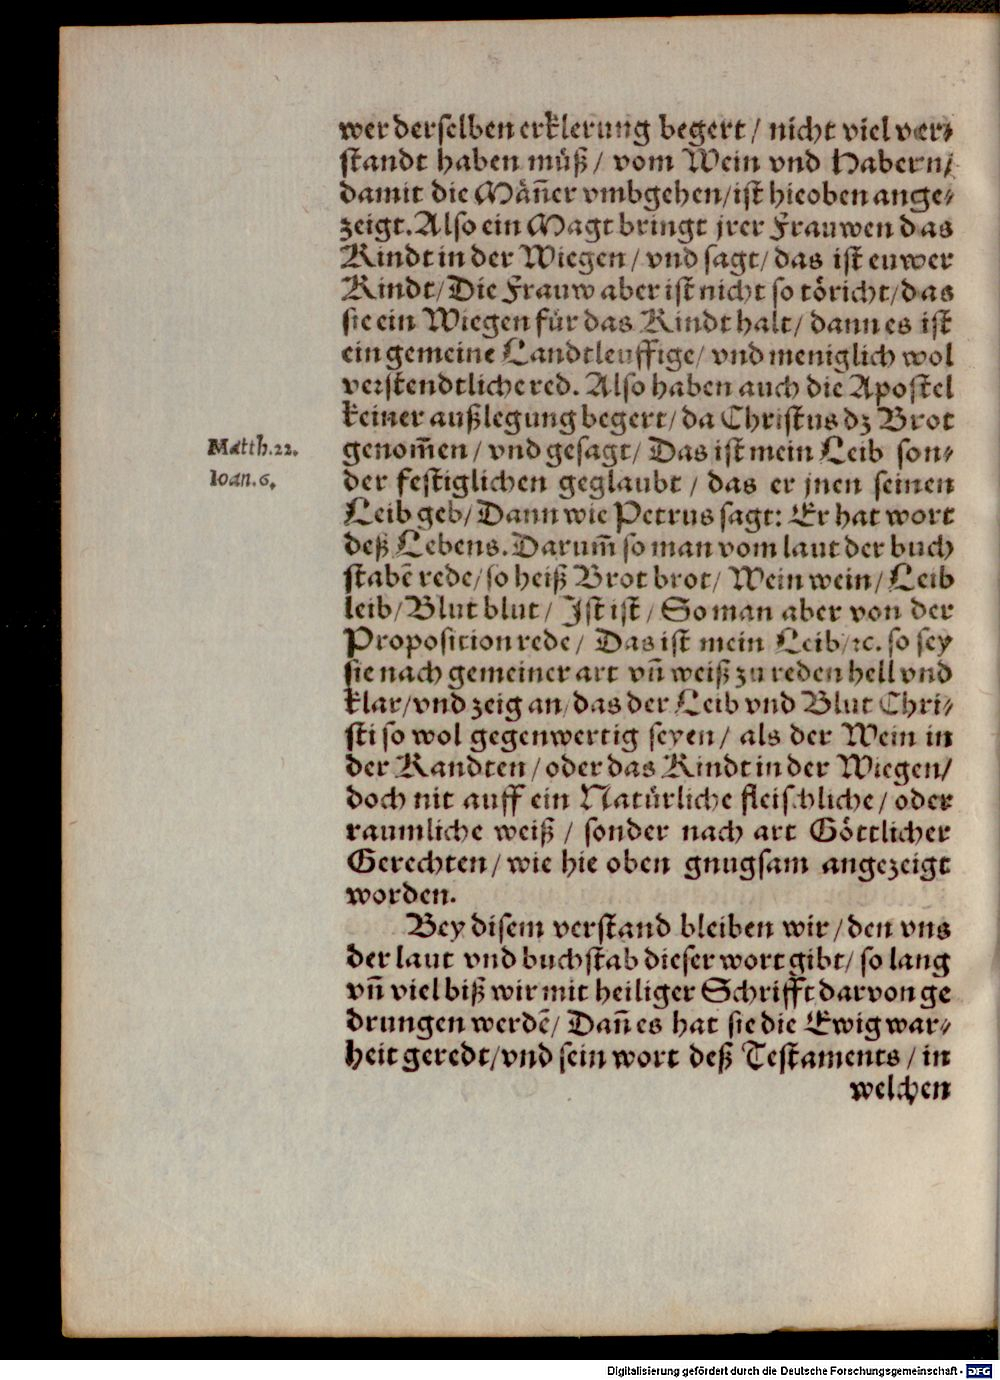 wer derselben erklerung begert / nicht viel ver⸗
standt haben müß / vom Wein vnd Habern /
damit die Mäñer vmbgehen / ist hieoben ange⸗
zeigt. Also ein Magt bringt jrer Frauwen das
Kindt in der Wiegen / vnd sagt / das ist euwer
Kindt / Die Frauw aber ist nicht so töricht / das
sie ein Wiegen für das Kindt halt / dann es ist
ein gemeine Landtleuffige / vnd meniglich wol
verstendtliche red. Also haben auch die Apostel
keiner außlegung begert / da Christus dz Brot
Matth. 22.
genom̃en / vnd gesagt / Das ist mein Leib son⸗
Ioan. 6.
der festiglichen geglaubt / das er jnen seinen
Leib geb / Dann wie Petrus sagt: Er hat wort
deß Lebens. Darum̃ so man vom laut der buch
stabẽ rede / so heiß Brot brot / Wein wein / Leib
leib / Blut blut / Ist ist / So man aber von der
Proposition rede / Das ist mein Leib / ꝛc. so sey
sie nach gemeiner art vñ weiß zu reden hell vnd
klar / vnd zeig an / das der Leib vnd Blut Chri⸗
sti so wol gegenwertig seyen / als der Wein in
der Kandten / oder das Kindt in der Wiegen /
doch nit auff ein Natürliche fleischliche / oder
raumliche weiß / sonder nach art Göttlicher
Gerechten / wie hie oben gnugsam angezeigt
worden.
Bey disem verstand bleiben wir / den vns
der laut vnd buchstab dieser wort gibt / so lang
vñ viel biß wir mit heiliger Schrifft darvon ge
drungen werdẽ / Dañ es hat sie die Ewig war⸗
heit geredt / vnd sein wort deß Testaments / in
welchen
Digitalisierung gefördert durch die Deutsche Forschungsgemeinschaft - DFG